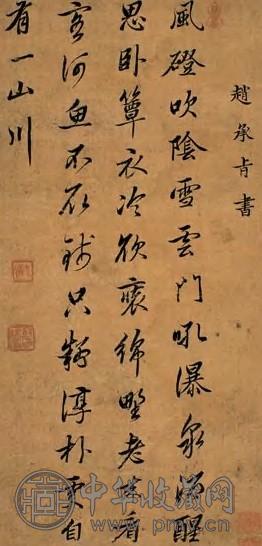 趙承旨書
風磴吹陰雪雲門吼瀑泉酒醒
思卧簟衣冷欲裹綿野老來看
客河魚不取錢只疑淳朴處自
有一山川
中华收藏网